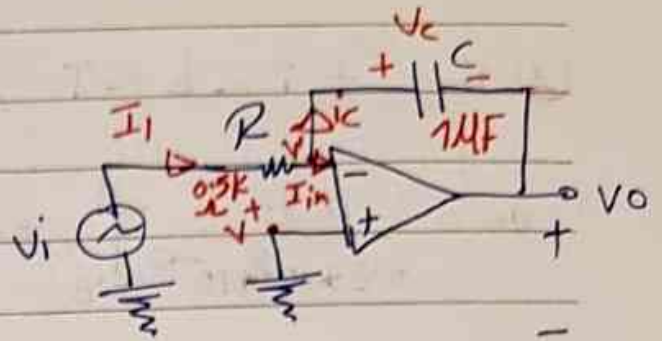 Vc
+ C -
I1 R ic 1MF
V -
0.5k Iin
Ω
V+ +
Vi
Vo
+
-